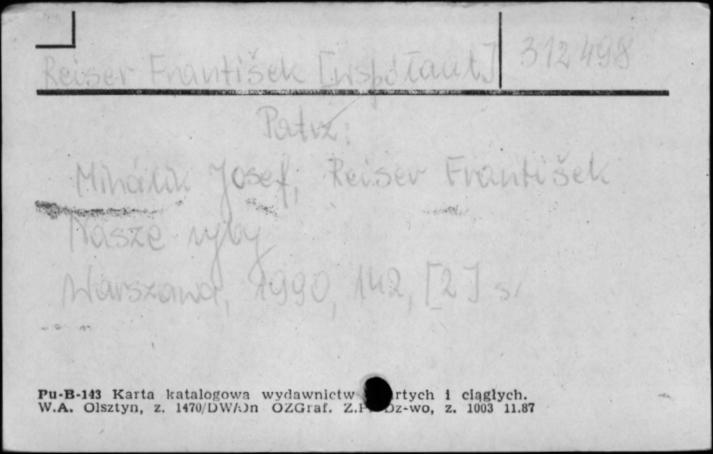 Reiser František [współaut] 312498
Patrz:
Mihálik Josef, Reiser František
Nasze ryby
Warszawa, 1990, 142, [2] s.
Pu-B-143 Karta katalogowa wydawnictw artych i ciągłych.
W.A. Olsztyn, z. 1470/DW/Dn OZGraf. Z.P. Dz-wo, z. 1003 11.87